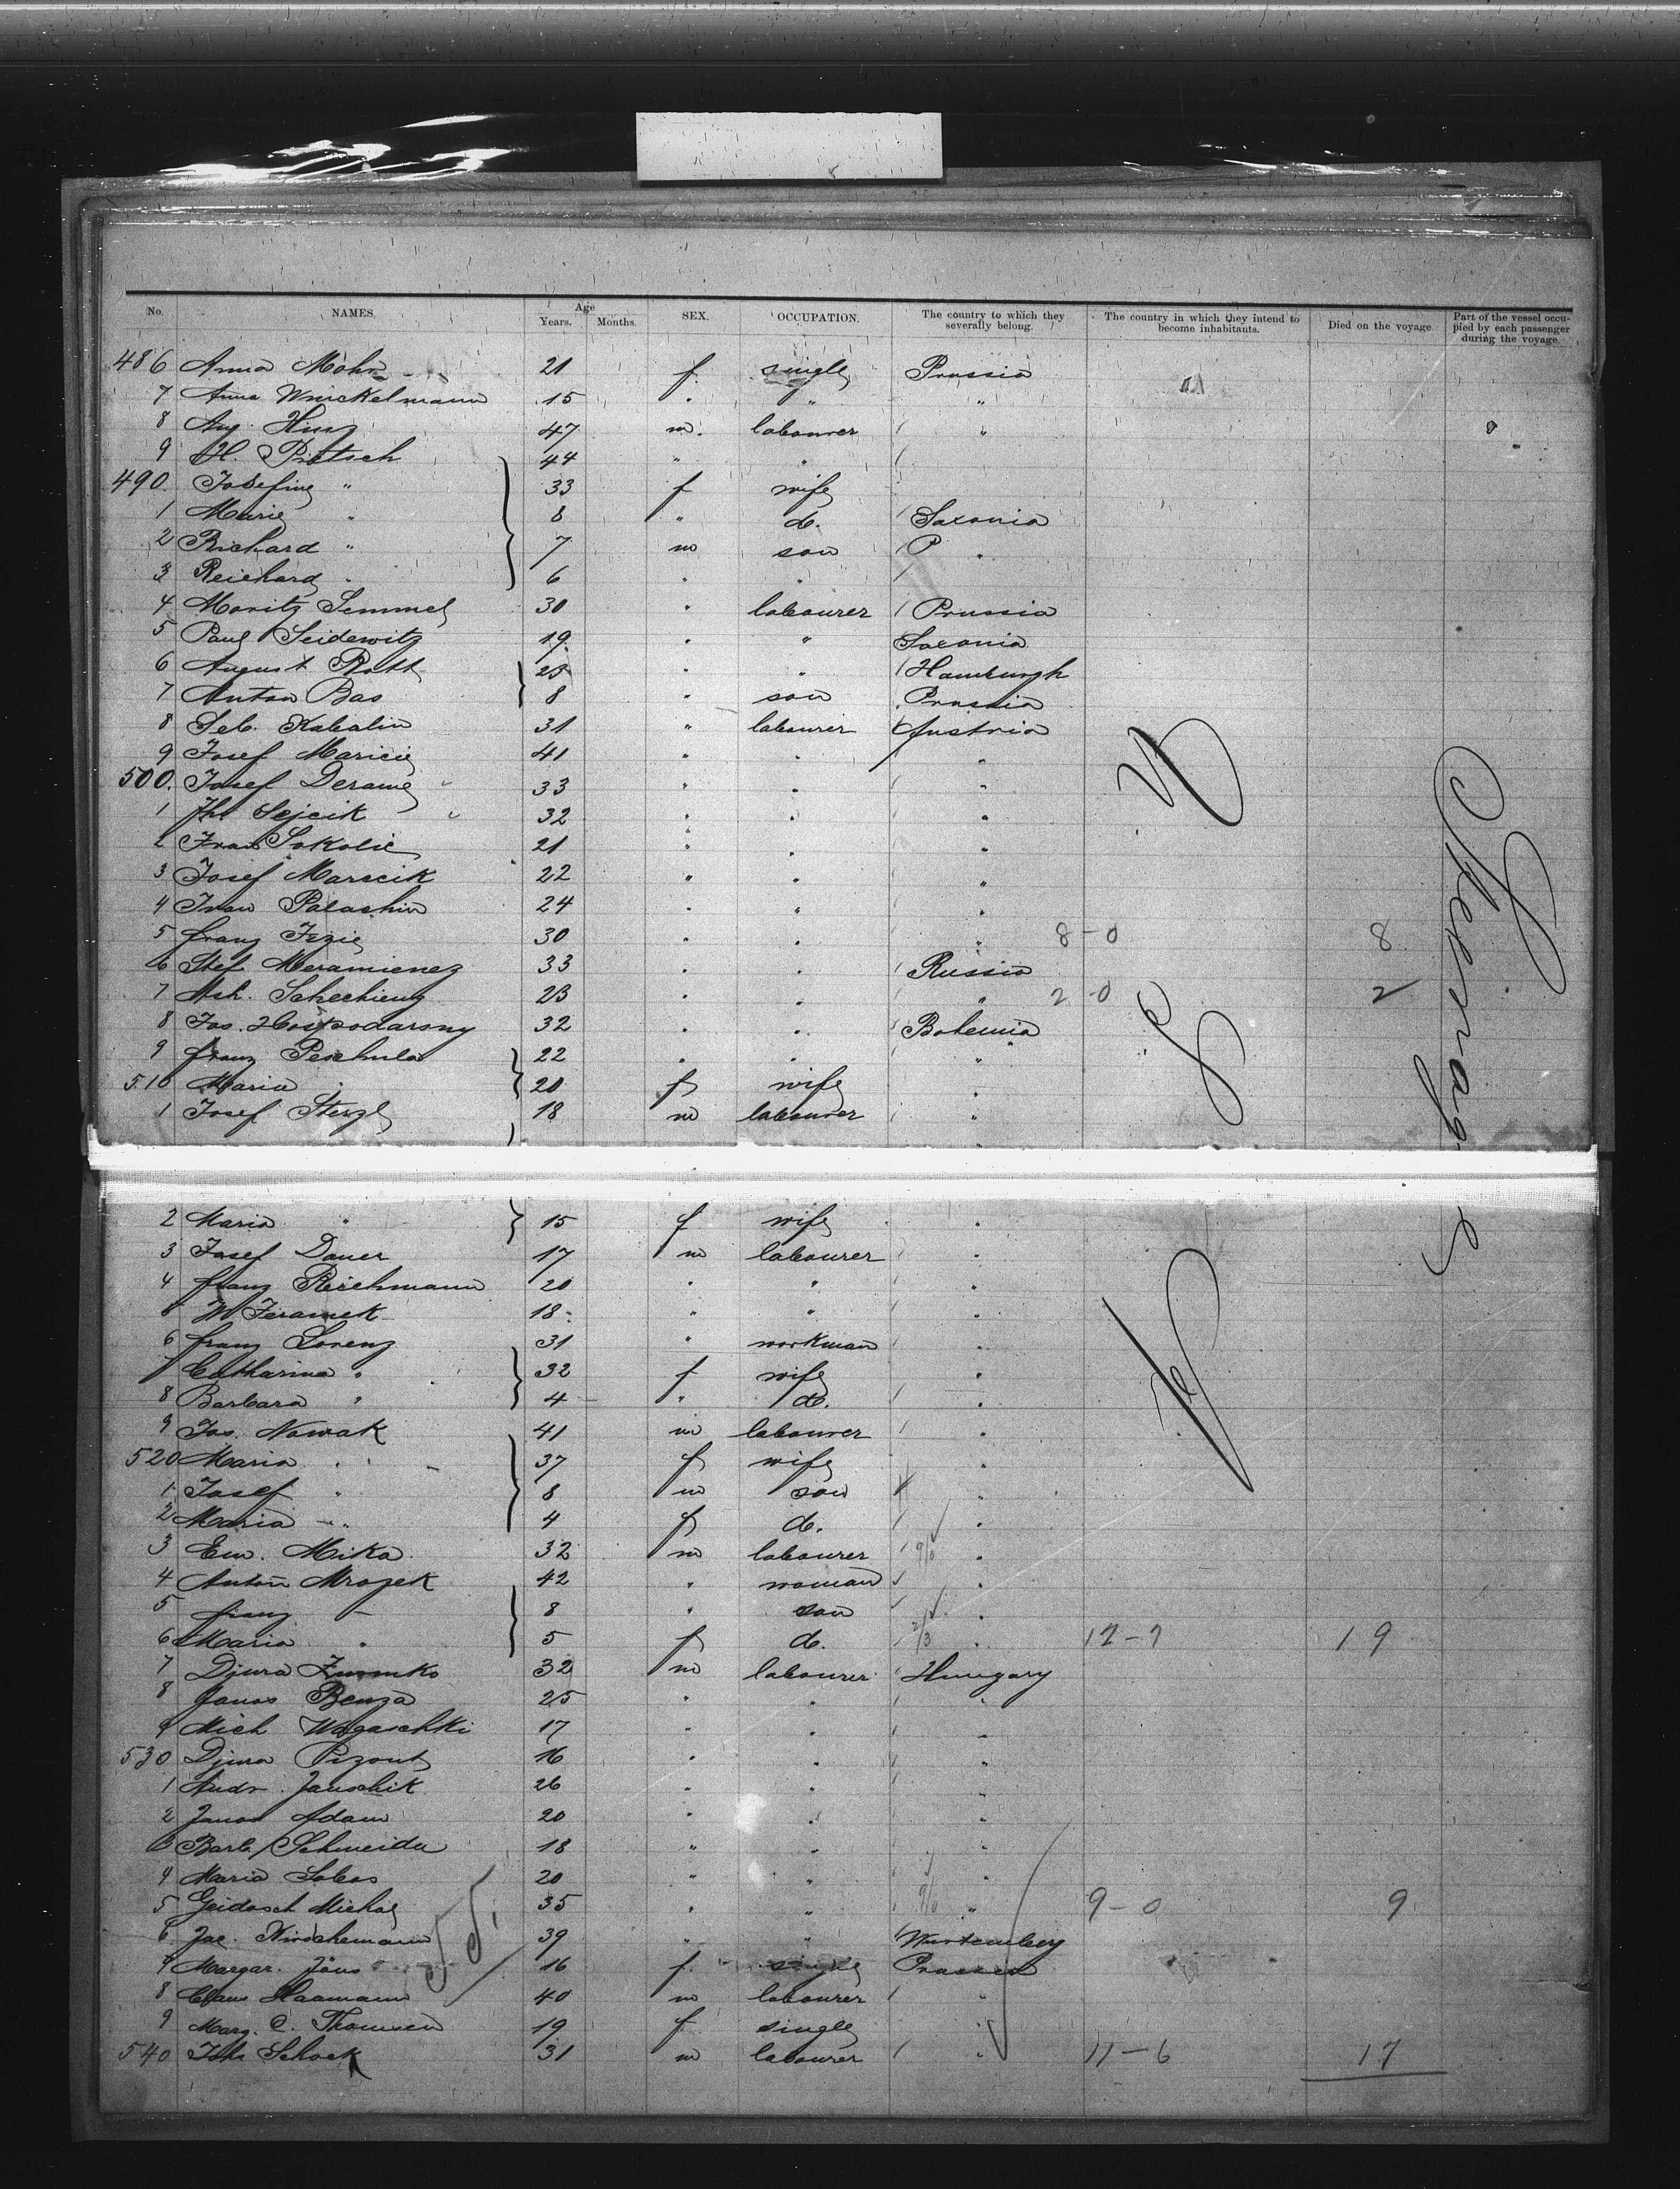 No. NAMES. Age Years. Months. SEX. OCCUPATION. The country to which they severally belong. The country in which they intend to become inhabitants. Died on the voyage. Part of the vessel occupied by each passenger during the voyage.
486 Anna Mohr 21 f. single Prussia
7 Anna Winckelmann 15 " " "
8 Aug. Hinz 47 m. labourer "
9 H. Pietsch 44 " "
490. Josefine " 33 f wife
1 Marie " 8 " d. Saxonia
2 Richard " 7 m son "
3 Reichard " 6 " "
4 Moritz Semmel 30 " labourer Prussia
5 Paul Seidewitz 19 " " Saxonia
6 August Rott 25 " " Hamburgh
7 Anton Bas 8 " son Prussia
8 Seb. Kabalin 31 " labourer Austria
9 Josef Maricic 41 " " "
500. Josef 33 " " "
1 Sejcik 32 " " "
2 Sokolic 21 " " "
3 Josef Marecik 22 " " "
4 Ivan Palachin 24 " " "
5 Franz 30 " " " 8-0 8
6 Stef 33 " " Russia
7 23 " " " 2-0 2
8 Jos. Hospodarsny 32 " " Bohemia
9 Franz Peschula 22 " " "
510 Maria " 20 f wife "
1 Josef Sterzl 18 m labourer "
2 Maria " 15 f wife "
3 Josef Dauer 17 m labourer "
4 Franz Reichmann 20 " " "
5 W 18 " " "
6 Franz Lorenz 31 " workman "
7 Catharina " 32 f wife "
8 Barbara " 4 " d. "
9 Jos. Nowak 41 m labourer "
520 Maria " 37 f wife "
1 Josef " 8 m son "
2 Maria " 4 f d. "
3 Em. Mika 32 m labourer "
4 Anton Mrozek 42 " woman "
5 Franz 8 " son "
6 Maria " 5 f d. " 12-7 19
7 Djura 32 m labourer Hungary
8 Janos Benza 25 " " "
9 Mich Wagaschki 17 " " "
530 Djura 16 " " "
1 Andr. Janschik 26 " " "
2 Janos Adam 20 " " "
3 Barb. Schneider 18 " " "
4 Maria 20 " " "
5 Geidosch Michal 35 " " " 9-0 9
6 Jac. 39 " " Wurtemberg
7 Margar. Jöns 16 f. single Prussia
8 Claus Haamann 40 m labourer "
9 Marg. C. Thomsen 19 f single "
540 Joh. Schock 31 m labourer " 11-6 17
U
S
A
Steerage